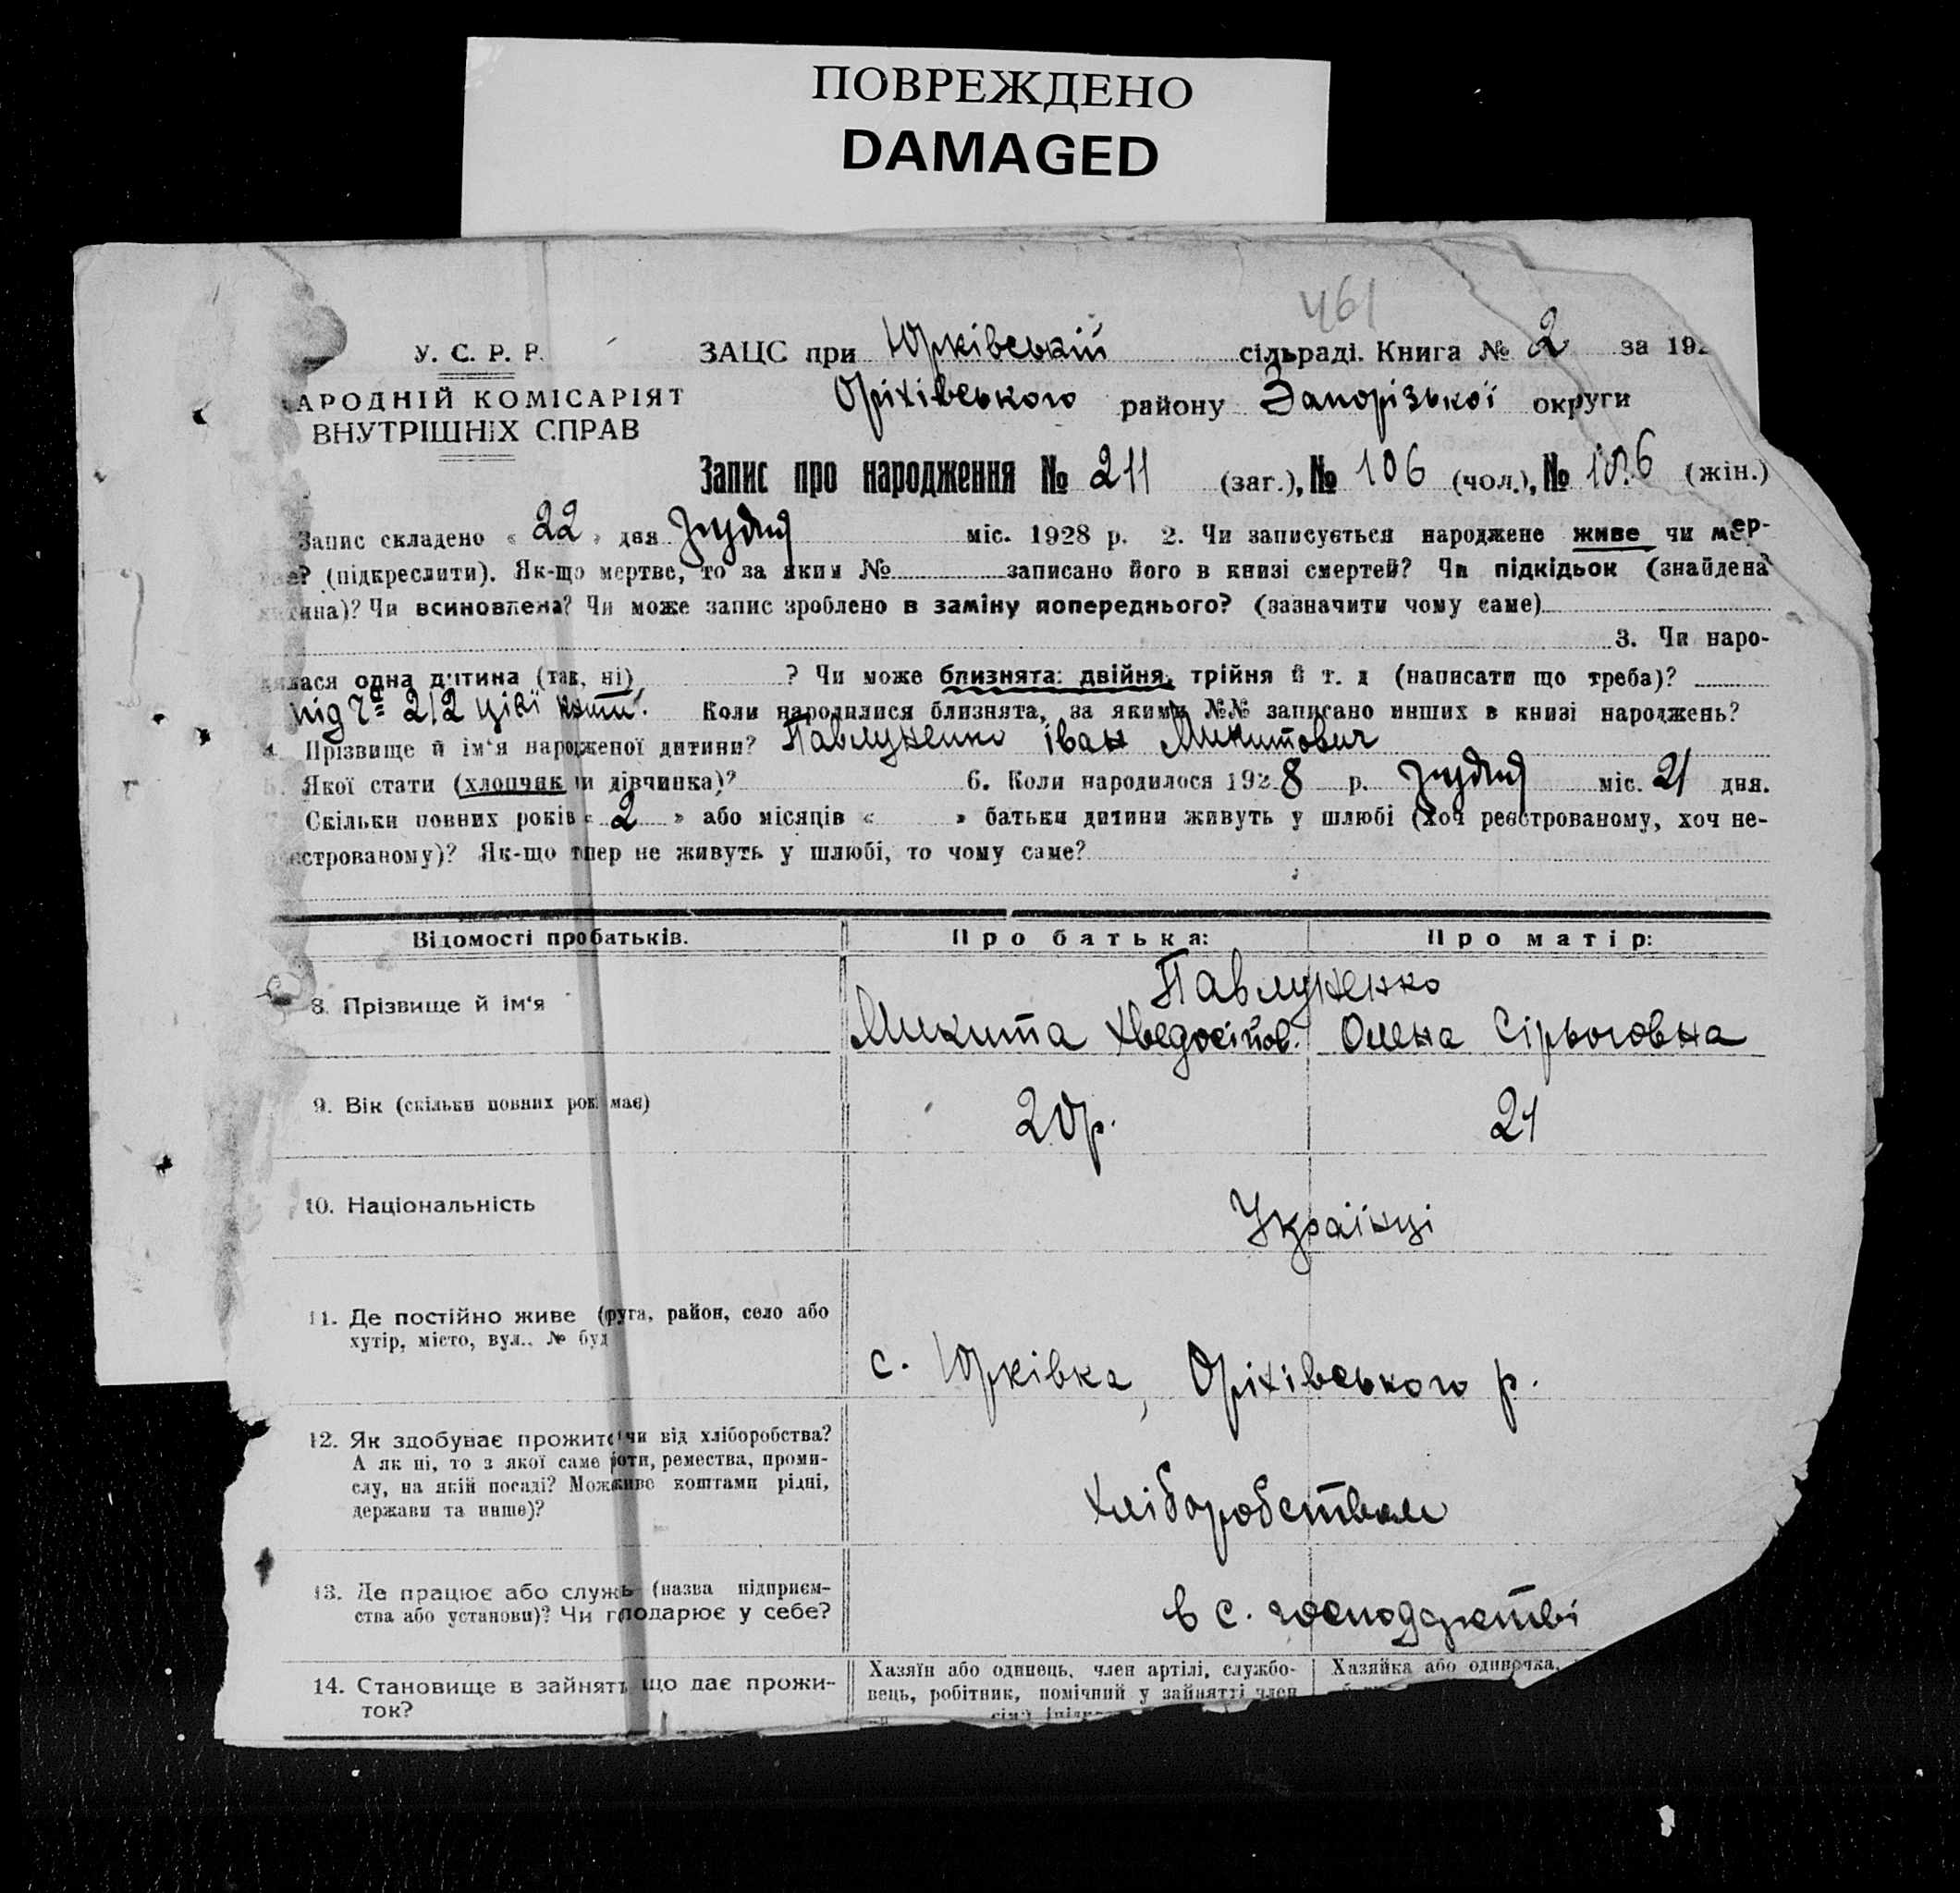 ПОВРЕЖДЕНО
DAMAGED
461
У. С. Р. Р.
ЗАЦС при Юрківській сільраді. Книга № 2 за 192
АРОДНІЙ КОМІСАРІЯТ
ВНУТРІШНІХ СПРАВ
Оріхівського району Запорізької округи
Запис про народження № 211 (заг.), № 106 (чол.), № (жін.)
Запис складено « 22 » дня грудня міс. 1928 р. 2. Чи записується народжене живе чи мер-
ве? (підкреслити). Як-що мертве, то за яким № записано його в книзі смертей? Чи підкідьок (знайдена
тина)? Чи всиновлена? Чи може запис зроблено в заміну попереднього? (зазначити чому саме)
3. Чи наро-
лася одна дитина (так, ні) ? Чи може близнята: двійня, трійня й т. д (написати що треба)?
під № 212 цієї Коли народилися близнята, за якими №№ записано инших в книзі народжень?
4. Прізвище й ім‘я народженої дитини? Павлуненко Іван Микитович
5. Якої стати (хлопчик чи дівчинка)? 6. Коли народилося 1928 р. грудня міс. 21 дня.
Скільки повних років « 2 » або місяців « » батьки дитини живуть у шлюбі (хоч реєстрованому, хоч не-
єстрованому)? Як-що тпер не живуть у шлюбі, то чому саме?
Відомості про батьків. Про батька: Про матір:
Павлуненко
8. Прізвище й ім‘я Микита Хведосійов. Олена Сірьоговна
9. Вік (скільки повних рокі має) 20р. 21
10. Національність Українці
11. Де постійно живе (руга, район, село або
хутір, місто, вул., № буд
с. Юрківка, Оріхівського р.
12. Як здобуває прожито чи від хліборобства?
А як ні, то з якої саме оти, ремества, проми-
слу, на якій посаді? Мож живе коштами рідні,
держави та инше)?
Хліборобством
13. Де працює або служ (назва підприєм-
ства або установи)? Чи гподарює у себе?
в с. господарстві
14. Становище в занять що дає прожи-
ток?
Хазяїн або одинець, член артілі, службо-
вець, робітник, помічний у зайнятті член
Хазяйка або одиночка,